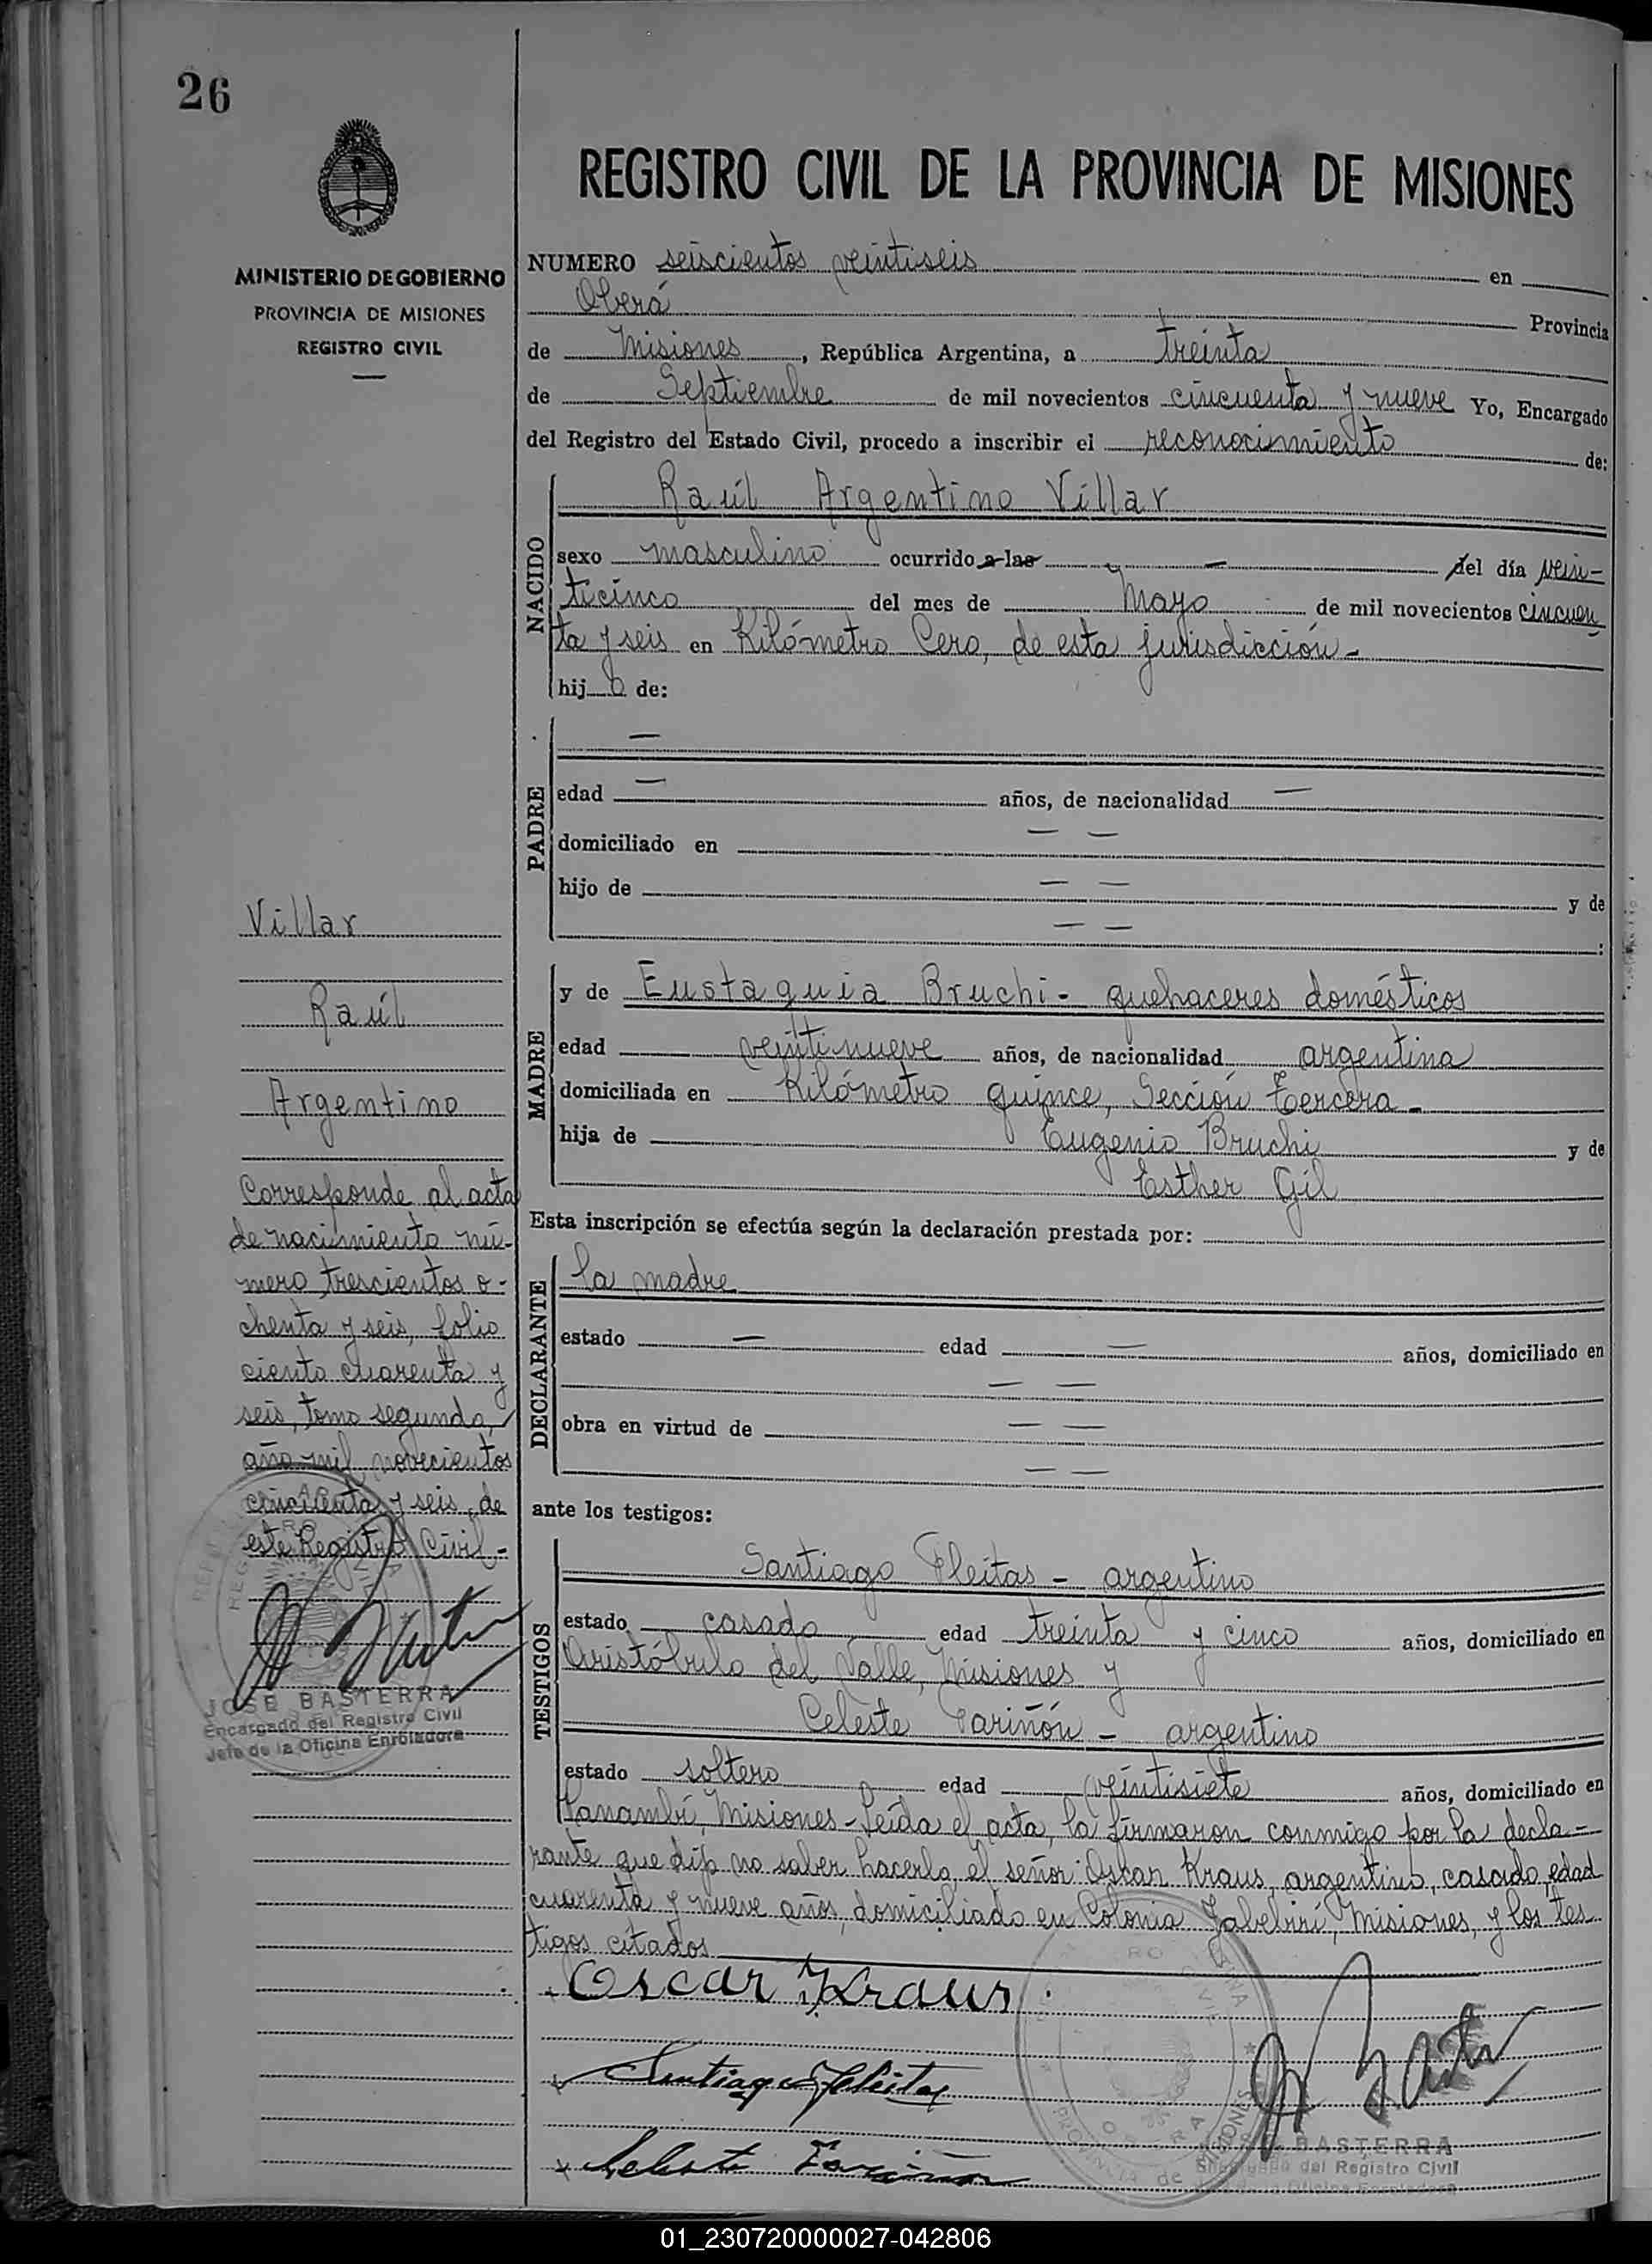 26
REGISTRO CIVIL DE LA PROVINCIA DE MISIONES
MINISTERIO DE GOBIERNO
PROVINCIA DE MISIONES
REGISTRO CIVIL
NUMERO seiscientos veintiseis en
Oberá Provincia
de Misiones, República Argentina, a treinta
de Septiembre de mil novecientos cincuenta y nueve Yo, Encargado
del Registro del Estado Civil, procedo a inscribir el reconocimiento de:
NACIDO
Raúl Argentino Villar
sexo masculino ocurrido a las - del día vein-
ticinco del mes de Mayo de mil novecientos cincuen
ta y seis en Kilómetro Cero, de esta jurisdicción -
hij o de:
PADRE
—
edad — años, de nacionalidad —
domiciliado en — —
hijo de — — y de
— — :
MADRE
y de Eustaquia Bruchi - quehaceres domésticos
edad veintinueve años, de nacionalidad argentina
domiciliada en Kilómetro quince, Sección Tercera -
hija de Eugenio Bruchi y de
Esther Gil
Esta inscripción se efectúa según la declaración prestada por:
DECLARANTE
la madre
estado — edad — años, domiciliado en
— —
obra en virtud de — —
— —
ante los testigos:
TESTIGOS
Santiago Fleitas - argentino
estado casado edad treinta y cinco años, domiciliado en
Aristóbulo del Valle, Misiones y
Celeste Fariñón - argentino
estado soltero edad veintisiete años, domiciliado en
Panambí, Misiones - Leída el acta, la firmaron conmigo por la decla-
rante que dijo no saber hacerlo, el señor Oscar Kraus, argentino, casado, edad
cuarenta y nueve años, domiciliado en Colonia Yabebirí, Misiones, y los tes
tigos citados
Oscar Kraus
Santiago Fleitas
Celeste Fariñon
JOSE BASTERRA
Encargado del Registro Civil
Villar
Raúl
Argentino
Corresponde al acta
de nacimiento nú-
mero trescientos o-
chenta y seis, folio
ciento cuarenta y
seis, tomo segundo,
año mil novecientos
cincuenta y seis, de
este Registro Civil -
JOSE BASTERRA
Encargado del Registro Civil
Jefe de la Oficina Enroladora
01_230720000027-042806